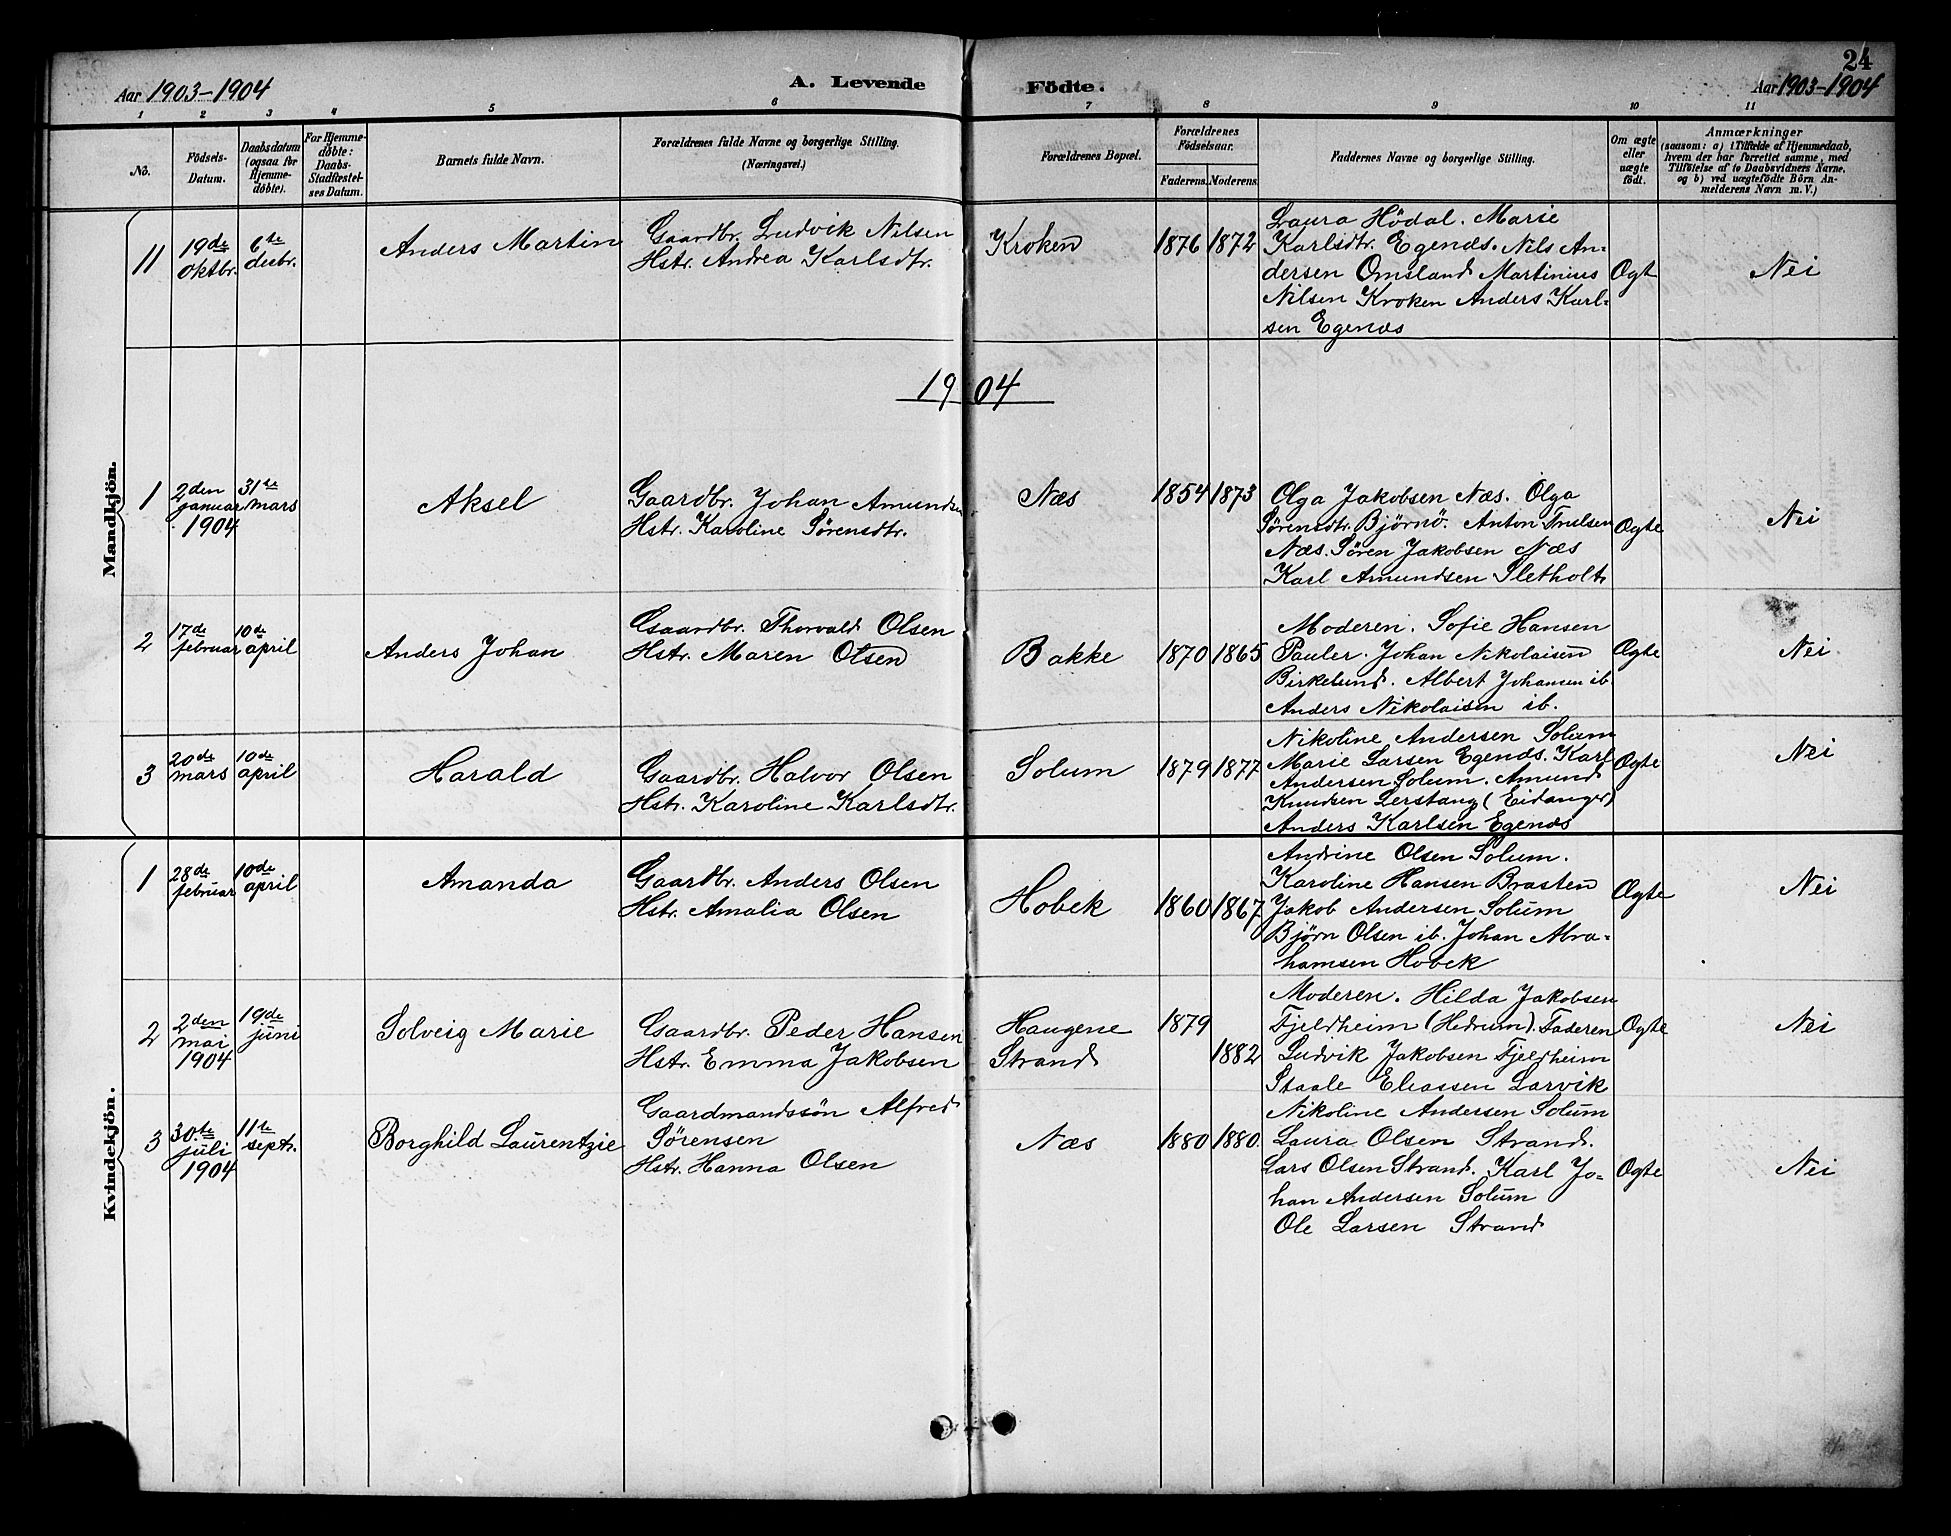 24
Aar 1903-1904
A. Levende Födte.
Aar 1903-1904
1 2 3 4 5 6 7 8 9 10 11
No.
Födsels-
Datum.
Daabsdatum
(ogsaa for
Hjemme-
døbte).
For Hjemme-
døbte:
Daabs-
Stadfæstel-
ses Datum.
Barnets fulde Navn.
Forældrenes fulde Navne og borgerlige Stilling.
(Næringsvei.)
Forældrenes Bopæl.
Forældrenes
Födselsaar.
Faderens. Moderens.
Faddernes Navne og borgerlige Stilling.
Om ægte
eller
uægte
født.
Anmærkninger
(saasom: a) i Tilfælde af Hjemmedaab,
hvem der har forrettet samme, med
Tilföielse af to Daabsvidners Navne,
og b) ved uægtefödte Börn An-
melderens Navn m. V.)
Mandkjön.
11
19de
oktbr.
6te
desbr.
Anders Martin
Gaardbr. Ludvik Nilsen
Hstr. Andrea Karlsdtr.
Kroken
1876 1872
Laura Hödal. Marie
Karlsdtr. Egenæs. Nils An-
dersen Omsland Martinius
Nilsen Kroken Anders Karl-
sen Egenæs
Ogt
Nei
1904
1
2den
januar
1904
31te
mars
Aksel
Gaardbr. Johan Amundsen
Hstr. Karoline Sörensdtr.
Næs
1854 1873
Olga Jakobsen Næs. Olga
Sörensdtr. Björnö. Anton Trulsen
Næs. Sören Jakobsen Næs
Karl Amundsen Sletholt
Ogte
Nei
2
17de
februar
10de
april
Anders Johan
Gaardbr. Thorvald Olsen
Hstr. Maren Olsen
Bakke
1870 1865
Moderen. Sofie Hansen
Pauler. Johan Nikolaisen
Birkelund. Albert Johansen ib.
Anders Nikolaisen ib.
Ogte
Nei
3
20de
mars
10de
april
Harald
Gaardbr. Halvor Olsen
Hstr. Karoline Karlsdtr.
Solum
1879 1877
Nikoline Andersen Solum
Marie Larsen Egenæs. Karl
Andersen Solum. Amund
Knudsen Lerstang (Eidanger)
Anders Karlsen Egenæs
Ogte
Nei
Kvindekjön.
1
28de
februar
10de
april
Amanda
Gaardbr. Anders Olsen
Hstr. Amalia Olsen
Hobek
1860 1867
Andrine Olsen Solum.
Karoline Hansen Brasten
Jakob Andersen Solum
Bjørn Olsen ib. Johan Abra-
hamsen Hobek
Ogte
Nei
2
2den
mai
1904
19de
juni
Solveig Marie
Gaardbr. Peder Hansen
Hstr. Emma Jakobsen
Haugene
Strand
1879
1882
Moderen. Hilda Jakobsen
Fjeldheim (Hedrum). Faderen
Ludvik Jakobsen Fjeldheim
Staale Eliassen Larvik
Ogte
Nei
3
30te
juli
1904
11te
septr.
Borghild Laurentzie
Gaardmandssön Alfred
Sörensen
Hstr. Hanna Olsen
Næs
1880 1880.
Nikoline Andersen Solum
Laura Olsen Strand.
Lars Olsen Strand. Karl Jo-
han Andersen Solum
Ole Larsen Strand
Ogte
Nei